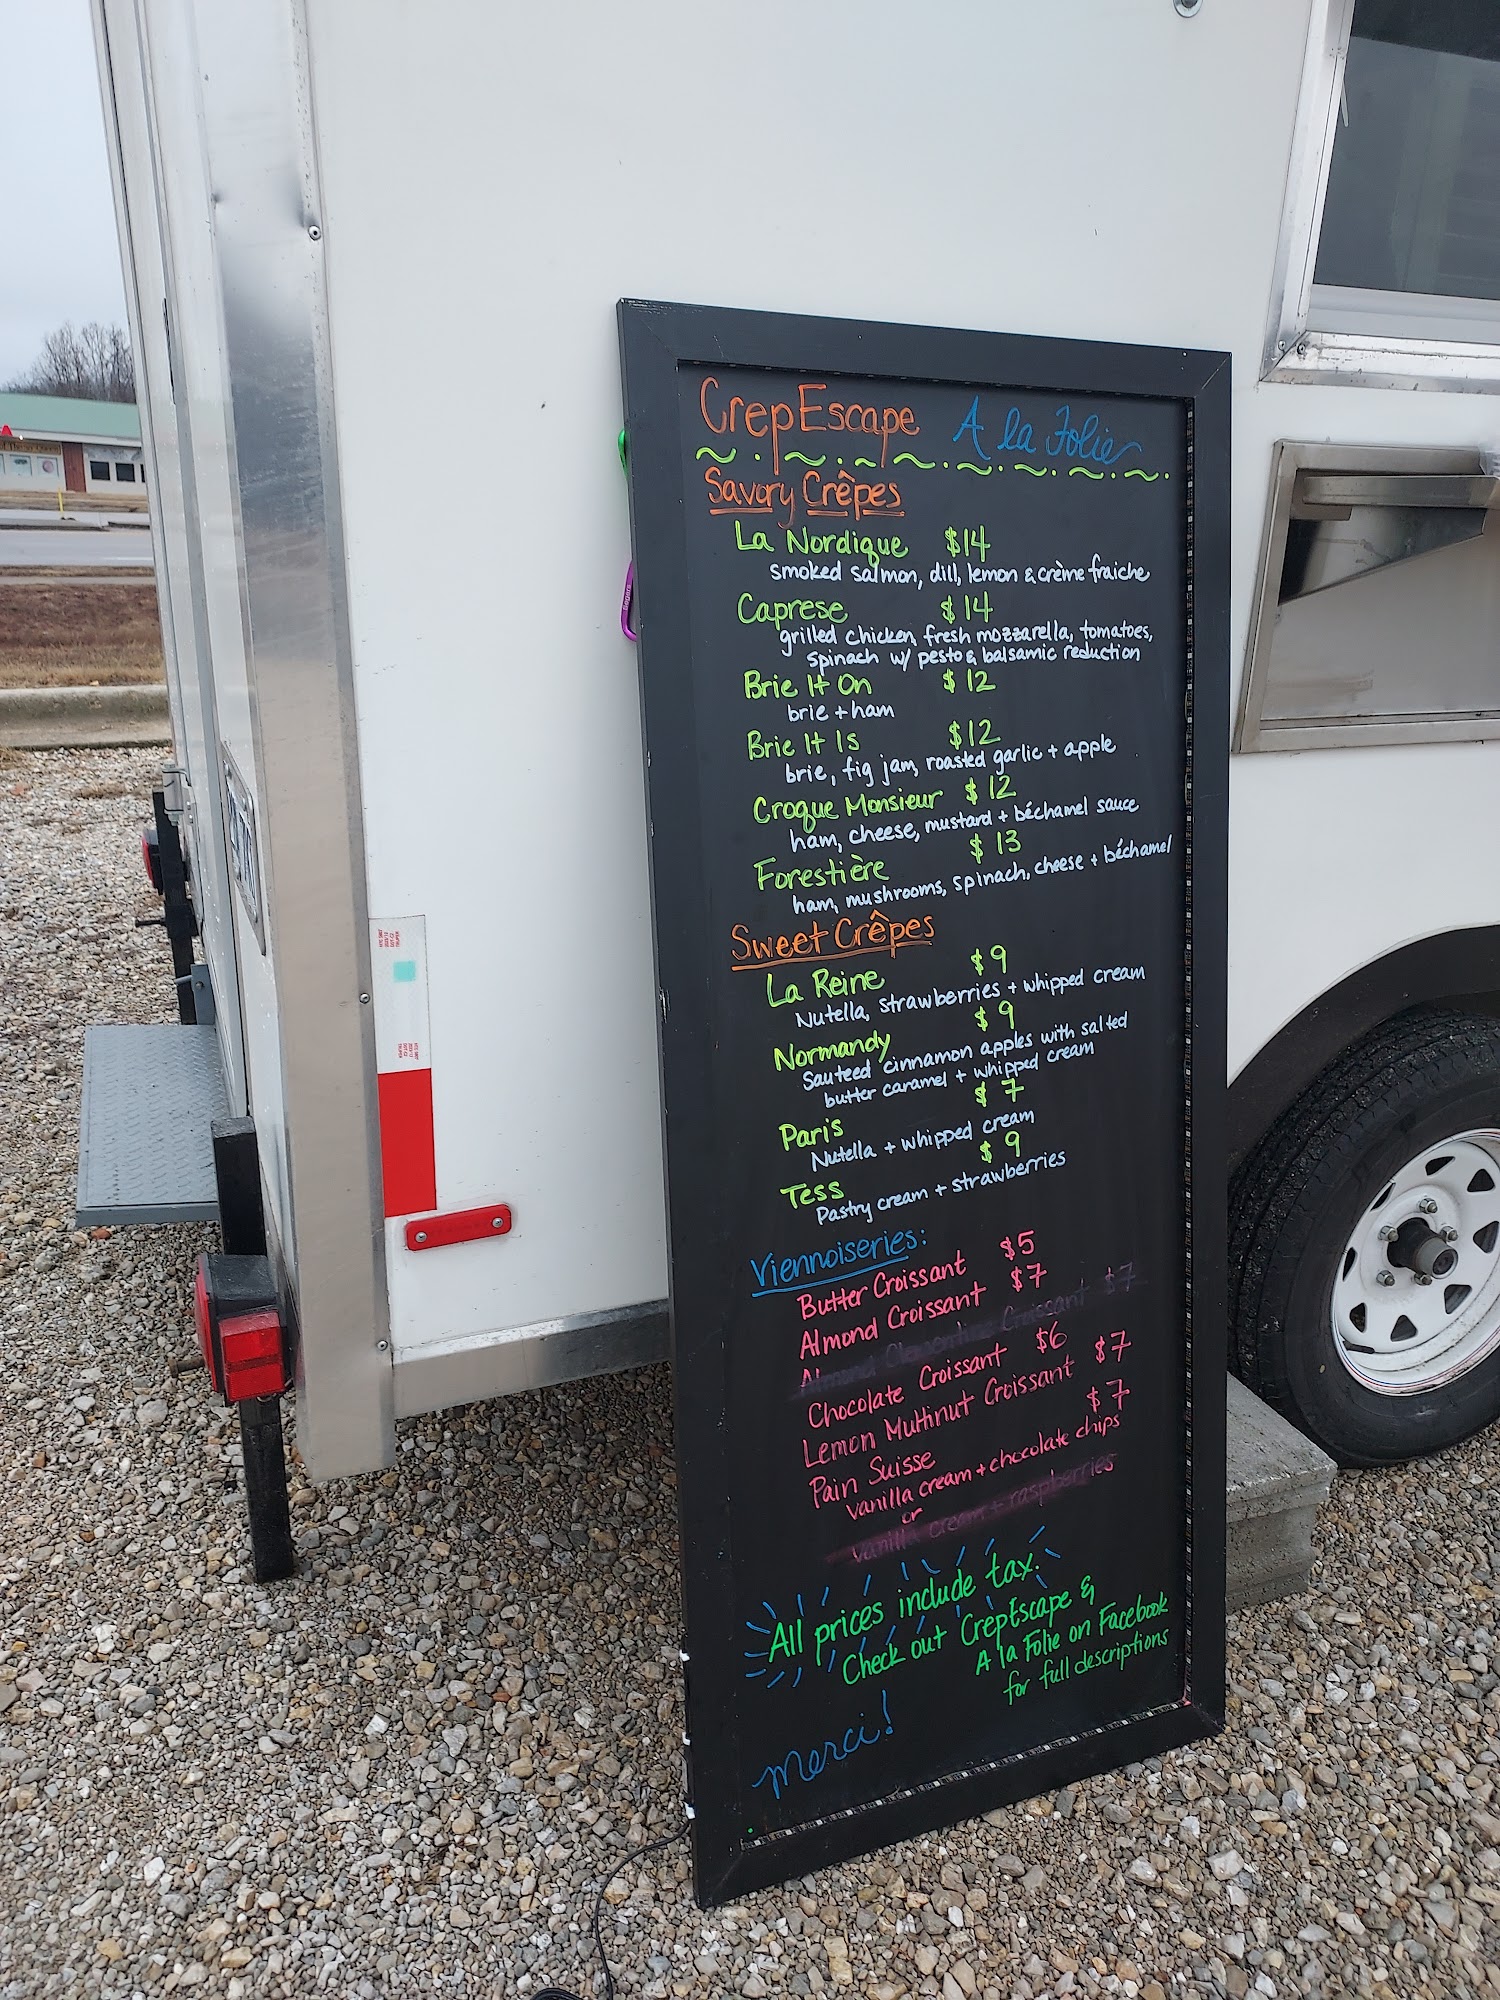 CrepEscape A la Folie
Savory Crêpes
La Nordique $14
smoked salmon, dill, lemon & crème fraiche
Caprese $14
grilled chicken, fresh mozzarella, tomatoes,
spinach w/ pesto & balsamic reduction
Brie It On $12
brie + ham
Brie It Is $12
brie, fig jam, roasted garlic + apple
Croque Monsieur $12
ham, cheese, mustard + béchamel sauce
Forestière $13
ham, mushrooms, spinach, cheese + béchamel
Sweet Crêpes
La Reine $9
Nutella, strawberries + whipped cream
Normandy $9
Sauteed cinnamon apples with salted
butter caramel + whipped cream
Paris $7
Nutella + whipped cream
Tess $9
Pastry cream + strawberries
Viennoiseries:
Butter Croissant $5
Almond Croissant $7
Almond Clementine Croissant $7
Chocolate Croissant $6
Lemon Multinut Croissant $7
Pain Suisse $7
vanilla cream + chocolate chips
or
vanilla cream + raspberries
All prices include tax.
Check out CrepEscape &
A la Folie on Facebook
for full descriptions
Merci!